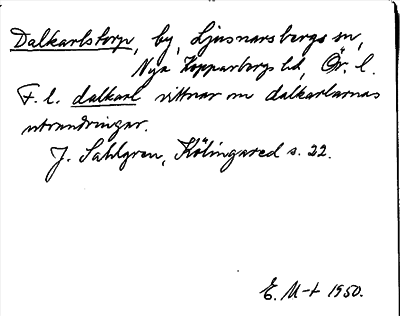 Dalkarlstorp, by, Ljusnarsbergs sn,
Nya Kopparbergs hd, Ör. l.
F. l. dalkarl vittnar om dalkarlarnas
utvandringar.
J. Sahlgren, Kölingared s. 22.
E. M-t 1950.